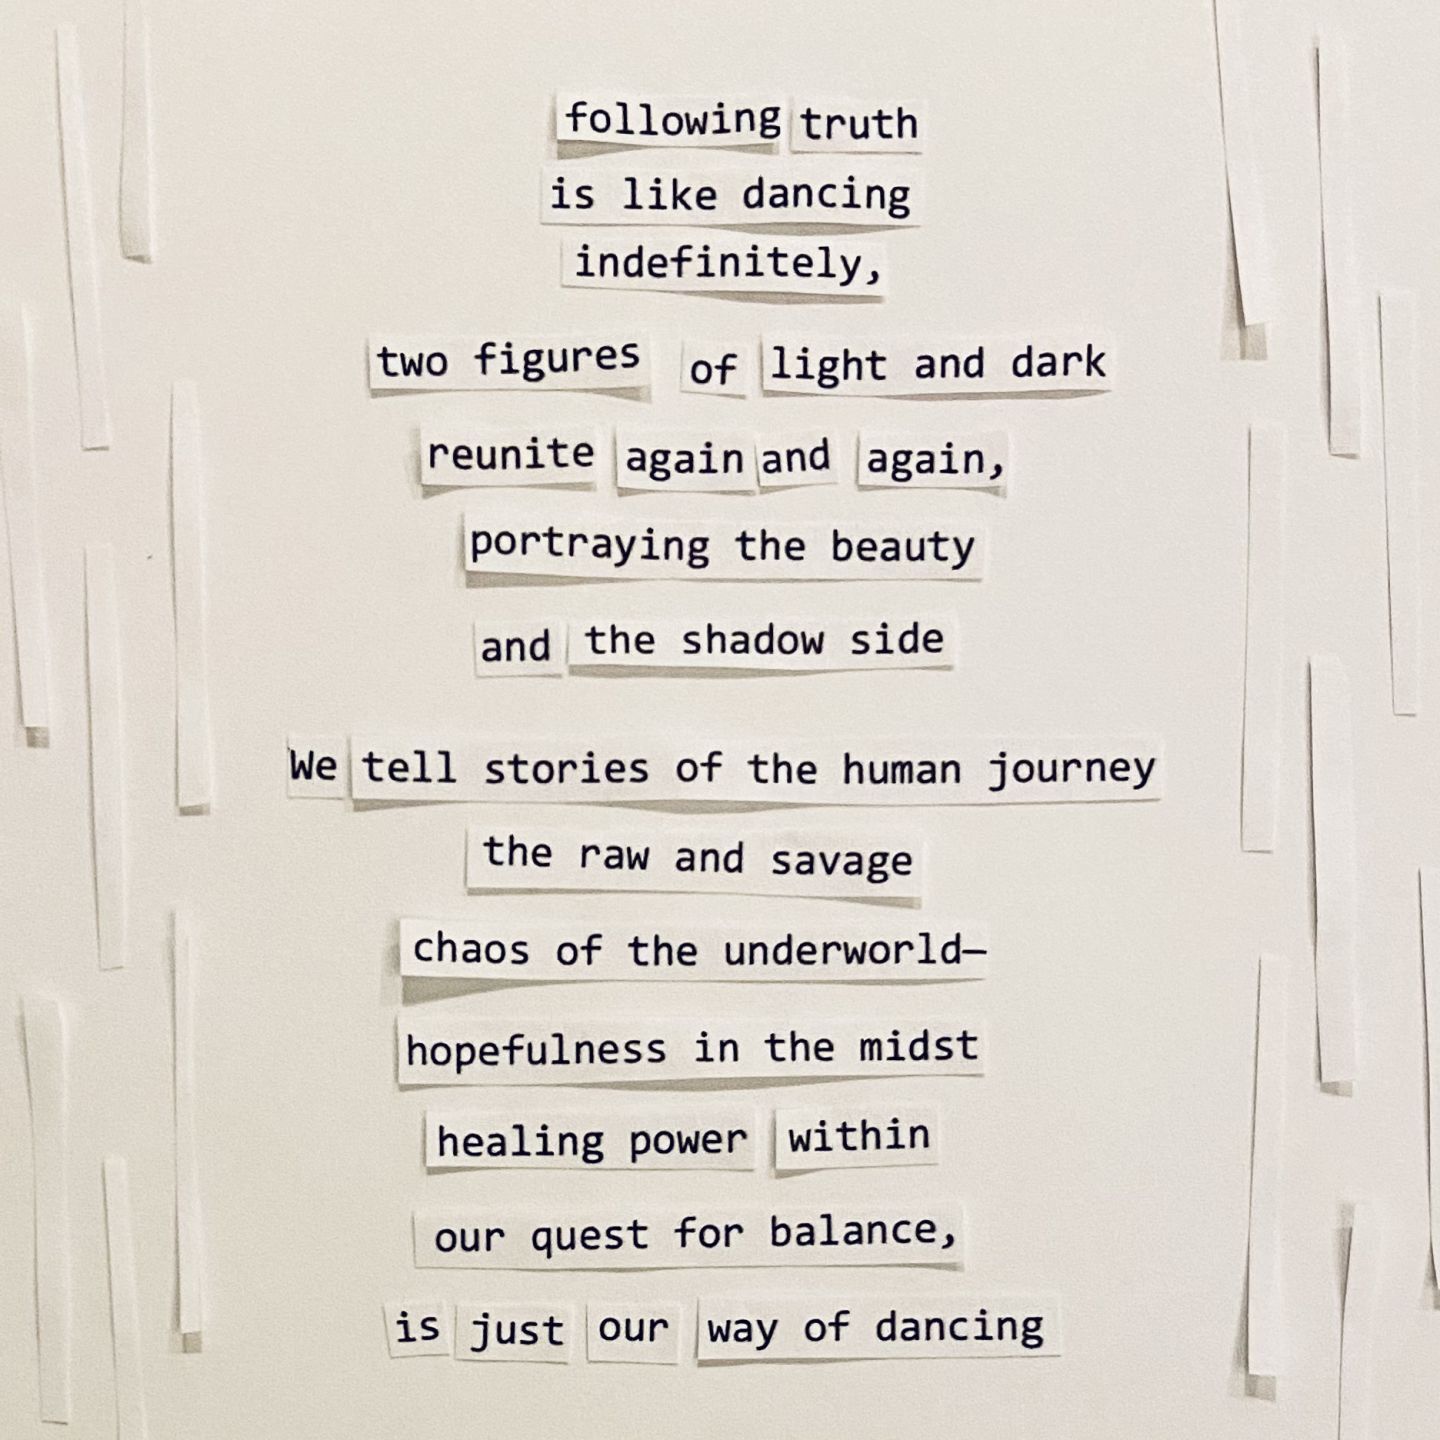 following truth
is like dancing
indefinitely,
two figures of light and dark
reunite again and again,
portraying the beauty
and the shadow side
We tell stories of the human journey
the raw and savage
chaos of the underworld—
hopefulness in the midst
healing power within
our quest for balance,
is just our way of dancing